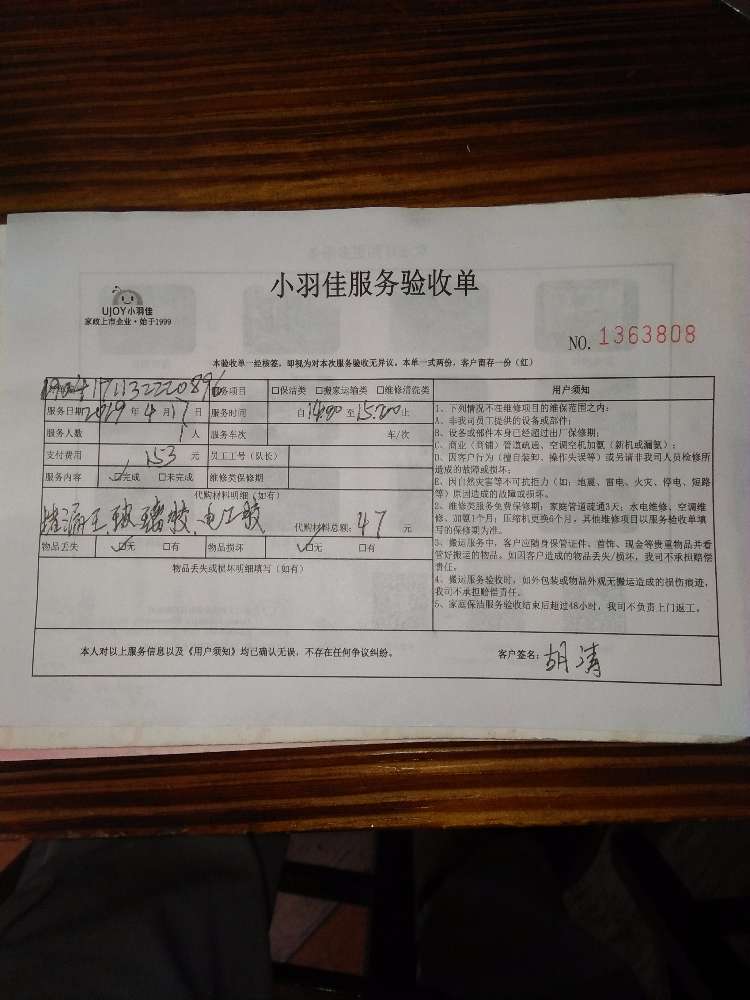 小羽佳服务验收单
UJOY小羽佳
家政上市企业·始于1999
NO. 1363808
本验收单一经核签，即视为对本次服务验收无异议。本单一式两份，客户留存一份（红）
务项目 □保洁类 □搬家运输类 □维修清洗类
服务日期 2019 年 4 月 17 日 服务时间 自 至 止
服务人数 1 人 服务车次 车/次
支付费用 153 元 员工工号（队长）
服务内容 ☑完成 □未完成 维修类保修期
代购材料明细（如有）
堵漏王、玻璃胶、电工胶 代购材料总额: 47 元
物品丢失 ☑无 □有 物品损坏 ☑无 □有
物品丢失或损坏明细填写（如有）
用户须知
1、下列情况不在维修项目的维保范围之内：
A、非我司员工提供的设备或部件；
B、设备或部件本身已经超过出厂保修期；
C、商业（商铺）管道疏通、空调空机加氨（新机或漏氨）；
D、因客户行为（擅自装卸、操作失误等）或另请非我司人员检修所
造成的故障或损坏；
E、因自然灾害等不可抗拒力（如：地震、雷电、火灾、停电、短路
等）原因造成的故障或损坏。
2、维修类服务免费保修期：家庭管道疏通3天；水电维修、空调维
修、加氨1个月；压缩机更换6个月，其他维修项目以服务验收单填
写的保修期为准。
3、搬运服务中，客户应随身保管证件、首饰、现金等贵重物品并看
管好搬运的物品。如因客户造成的物品丢失/损坏，我司不承担赔偿
责任。
4、搬运服务验收时，如外包装或物品外观无搬运造成的损伤痕迹，
我司不承担赔偿责任。
5、家庭保洁服务验收结束后超过48小时，我司不负责上门返工。
本人对以上服务信息以及《用户须知》均已确认无误，不存在任何争议纠纷。 客户签名: 胡清